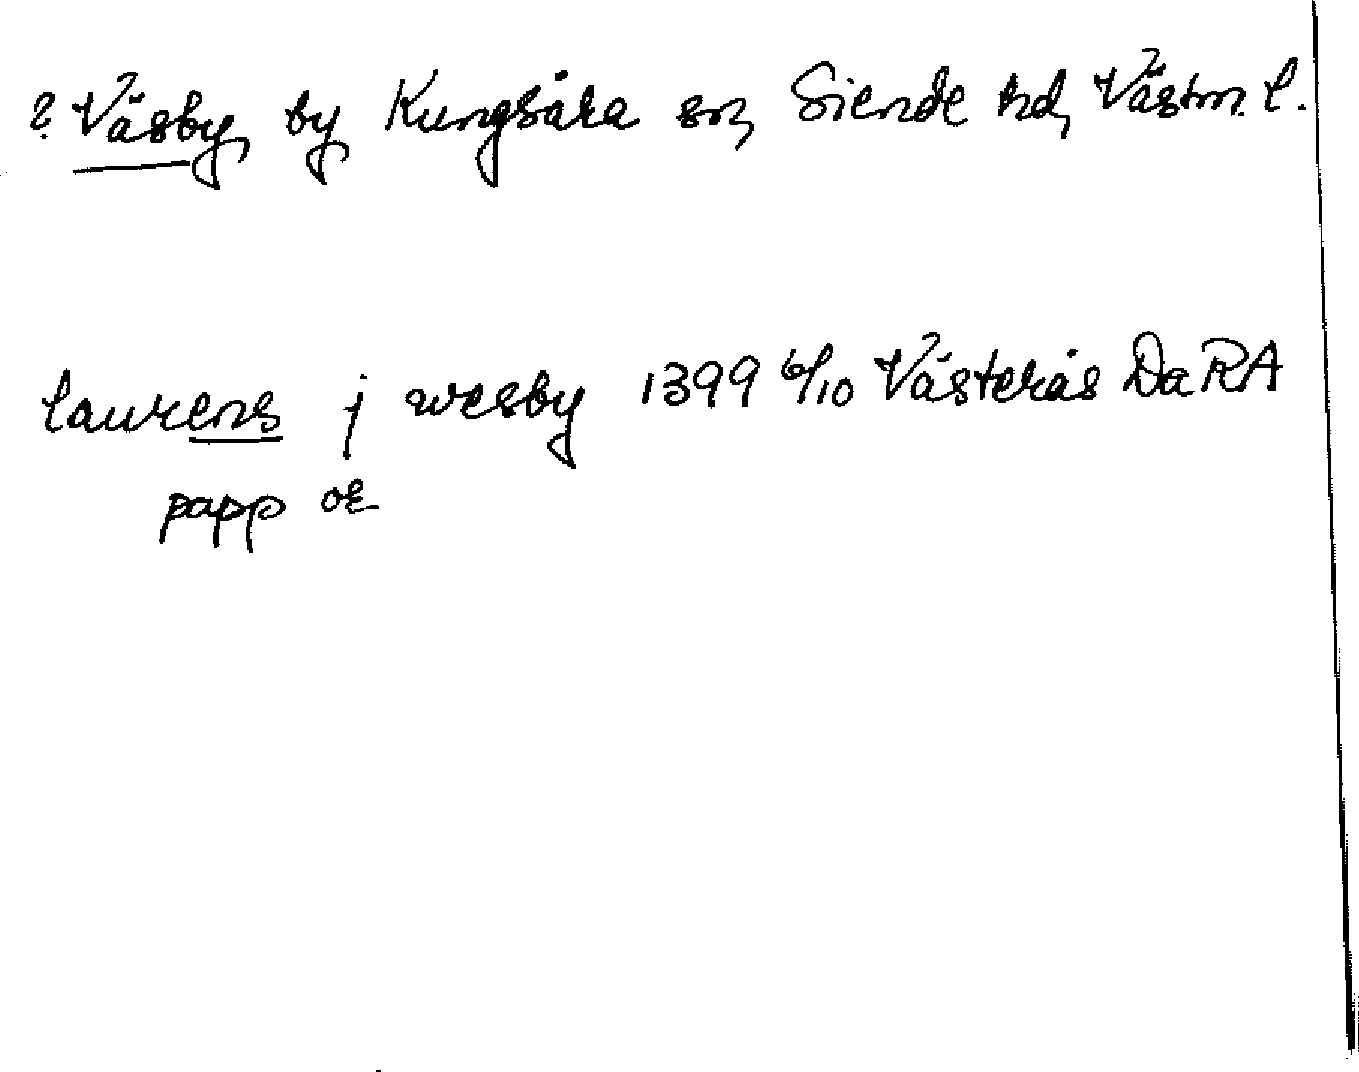 ? Väsby, by Kungsåra sn, Siende hd, Västm. l.
laurens j wesby 1399 6/10 Västerås DaRA
papp or